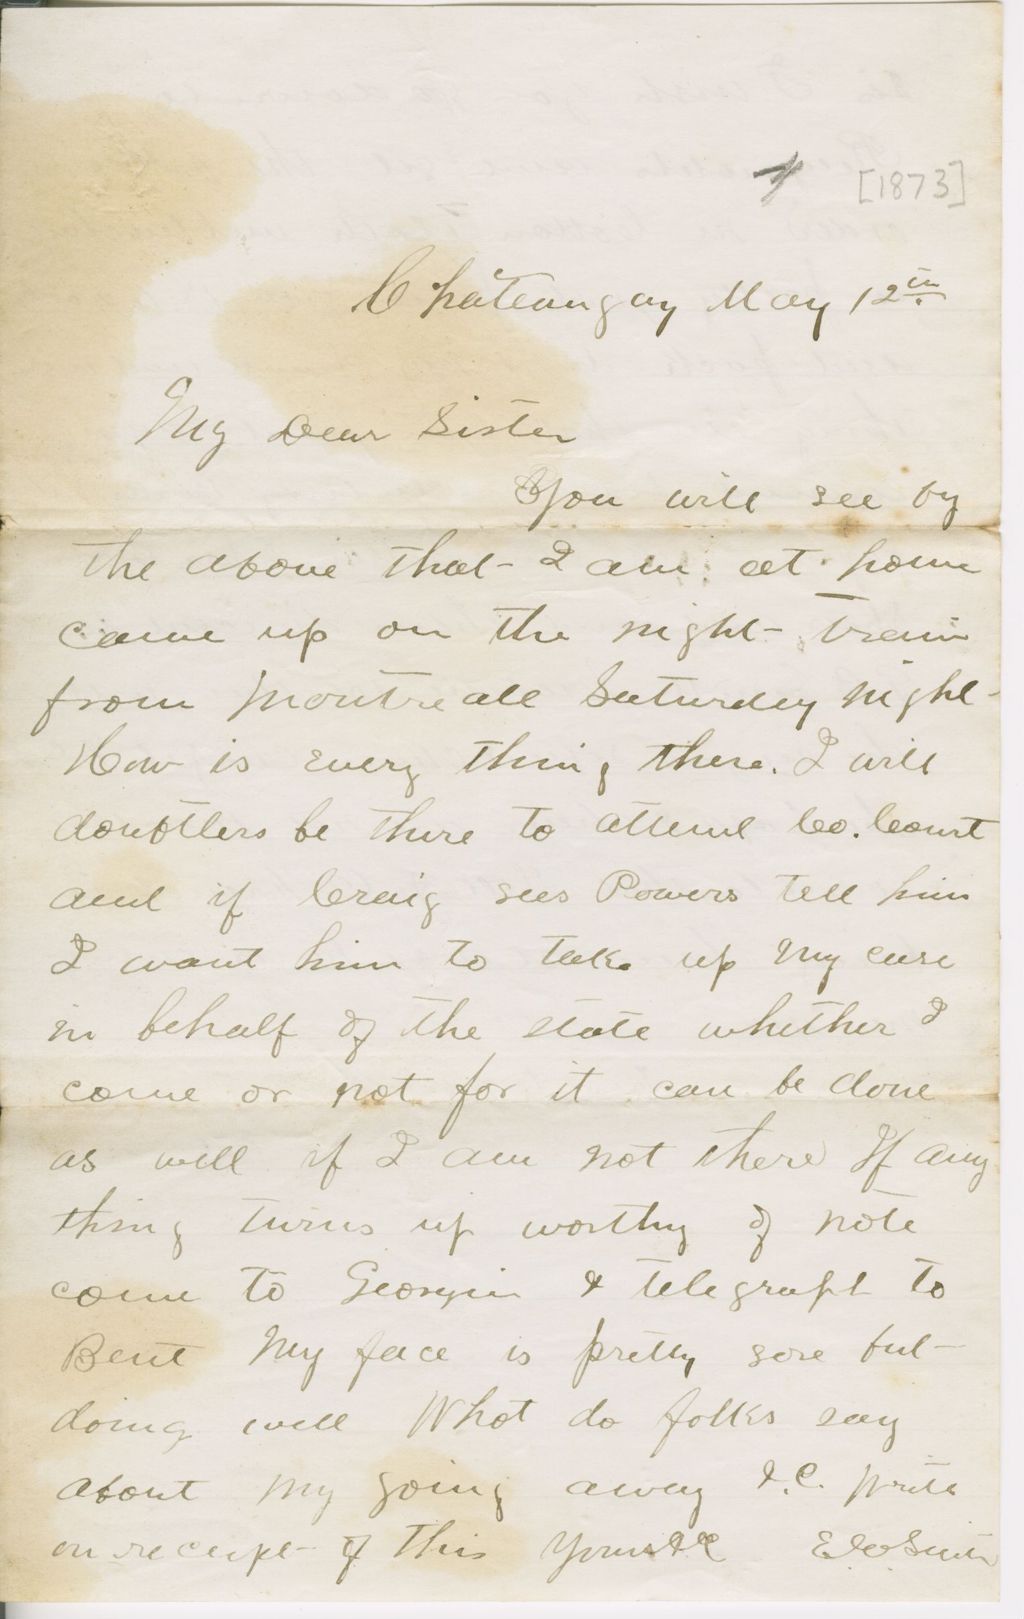 [1873]
Chateaugay May 12th
My Dear Sister
You will see by
the above that I am at home
came up on the night train
from Montreall Saturday night
How is every thing there. I will
doubtless be there to attend Co. Court
and if Craig sees Powers tell him
I want him to take up my case
in behalf of the state whether I
come or not for it can be done
as well if I am not there If any
thing turns up worthy of note
come to Georgia & telegraph to
Bent My face is pretty sore but
doing well What do folks say
about my going away &.C. Write
on receipt of this Yours &C Smith